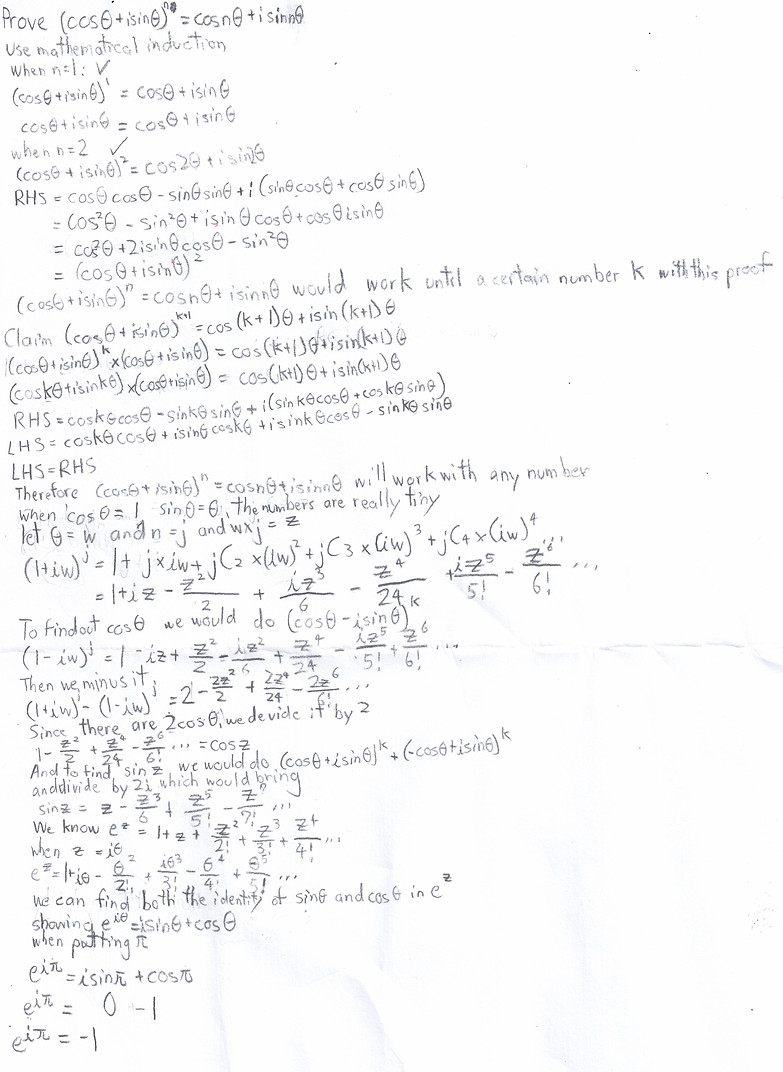 Prove (cosθ+isinθ)ⁿ = cosnθ+isinnθ
Use mathematical induction
When n=1: ✓
(cosθ+isinθ)¹ = cosθ+isinθ
cosθ+isinθ = cosθ+isinθ
when n=2 ✓
(cosθ+isinθ)² = cos2θ+isin2θ
RHS = cosθcosθ - sinθsinθ + i(sinθcosθ+cosθsinθ)
= cos²θ - sin²θ + isinθcosθ + cosθisinθ
= cos²θ + 2isinθcosθ - sin²θ
= (cosθ+isinθ)²
(cosθ+isinθ)ⁿ = cosnθ+isinnθ would work until a certain number k with this proof
Claim (cosθ+isinθ)^k+1 = cos(k+1)θ+isin(k+1)θ
(cosθ+isinθ)^k × (cosθ+isinθ) = cos(k+1)θ+isin(k+1)θ
(coskθ+isinkθ)×(cosθ+isinθ) = cos(k+1)θ+isin(k+1)θ
RHS = coskθcosθ - sinkθsinθ + i(sinkθcosθ+coskθsinθ)
LHS = coskθcosθ + isinθcoskθ + isinkθcosθ - sinkθsinθ
LHS = RHS
Therefore (cosθ+isinθ)ⁿ = cosnθ+isinnθ will work with any number
when cosθ=1 sinθ=θ, the numbers are really tiny
let θ=w and n=j and w×j=z
(1+iw)^j = 1+ j×iw + jC₂×(iw)² + jC₃×(iw)³ + jC₄×(iw)⁴
= 1+iz - z²/2 + iz³/6 - z⁴/24 + iz⁵/5! - z⁶/6! ...
To findout cosθ we would do (cosθ-isinθ)^k
(1-iw)^j = 1 - iz + z²/2 - iz²/6 + z⁴/24 - iz⁵/5! + z⁶/6! ...
Then we minus it
(1+iw)^j - (1-iw)^j = 2 - 2z²/2 + 2z⁴/24 - 2z⁶/6! ...
Since there are 2cosθ, we devide it by 2
1 - z²/2 + z⁴/24 - z⁶/6! ... = cosz
And to find sinz we would do (cosθ+isinθ)^k + (-cosθ+isinθ)^k
and divide by 2i which would bring
sinz = z - z³/6 + z⁵/5! - z⁷/7! ...
We know e^z = 1+z+ z²/2! + z³/3! + z⁴/4! ...
when z=iθ
e^z = 1+iθ - θ²/2! + iθ³/3! - θ⁴/4! + θ⁵/5! ...
we can find both the identity of sinθ and cosθ in e^z
showing e^iθ = isinθ+cosθ
when putting π
e^iπ = isinπ + cosπ
e^iπ = 0 - 1
e^iπ = -1